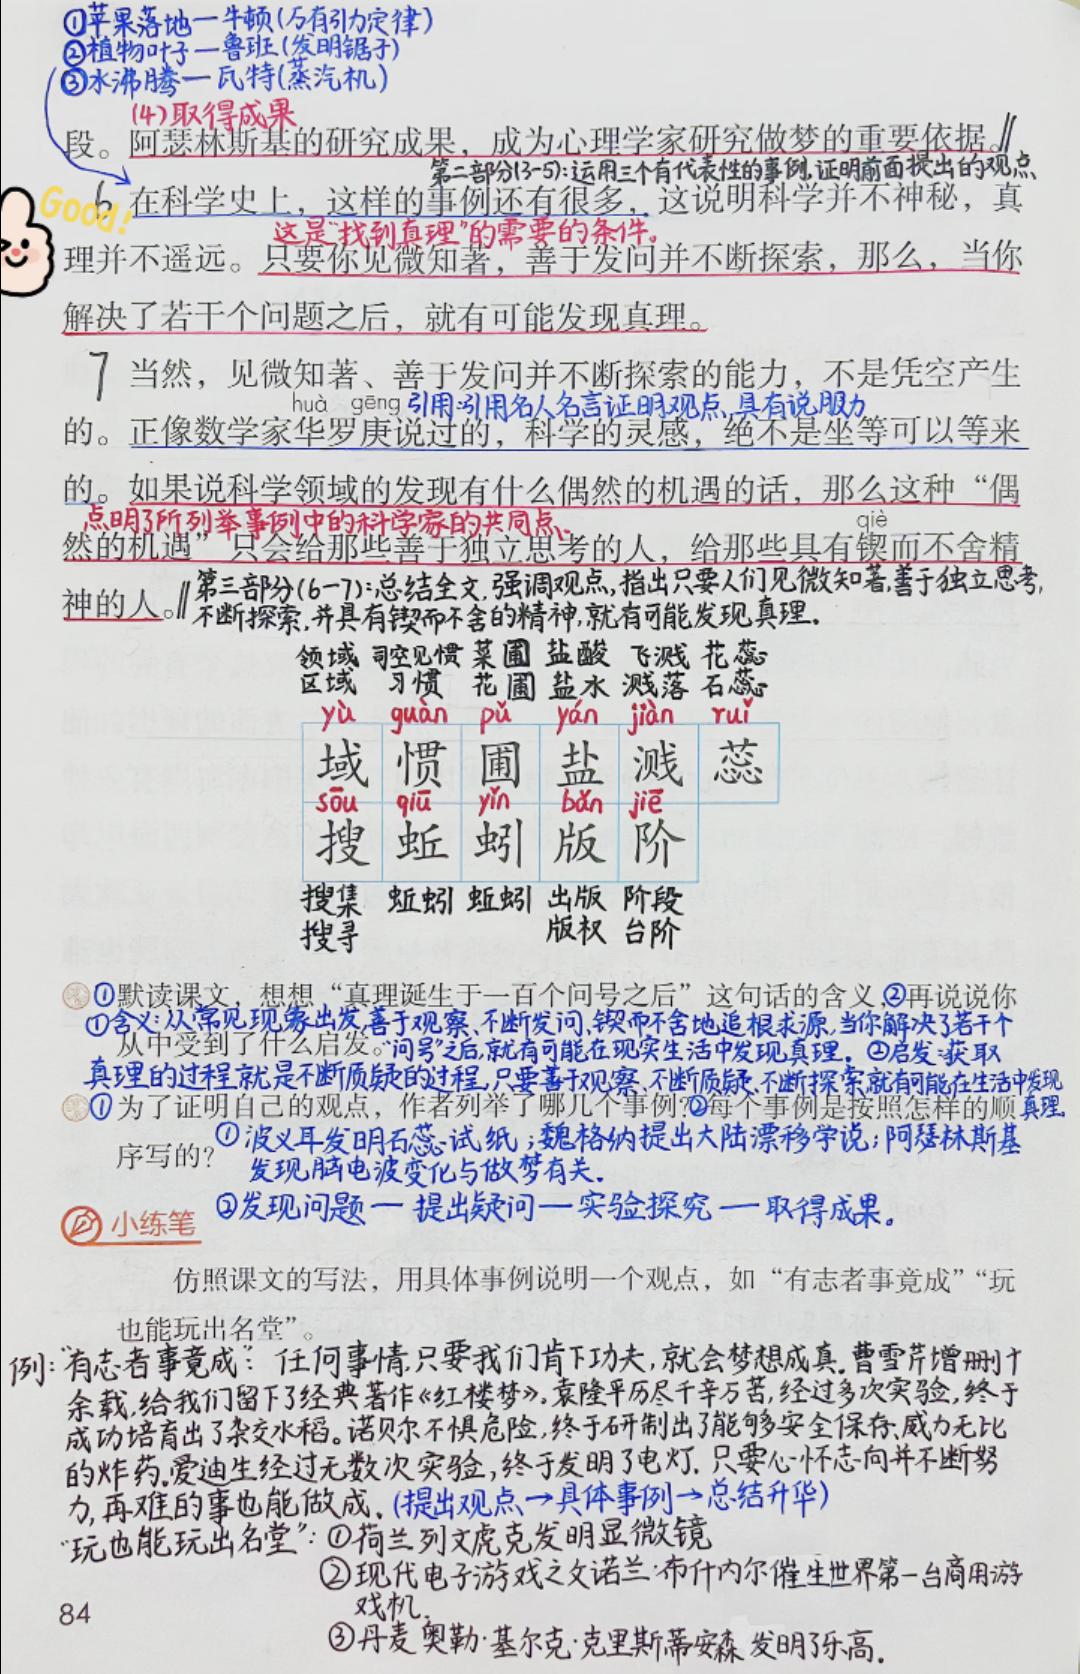 ①苹果落地—牛顿(万有引力定律)
②植物叶子—鲁班(发明锯子)
③水沸腾—瓦特(蒸汽机)
(4)取得成果
段。阿瑟林斯基的研究成果，成为心理学家研究做梦的重要依据。
第二部分(3-5):运用三个有代表性的事例,证明前面提出的观点
Good!
6 在科学史上，这样的事例还有很多，这说明科学并不神秘，真
这是“找到真理”的需要的条件。
理并不遥远。只要你见微知著，善于发问并不断探索，那么，当你
解决了若干个问题之后，就有可能发现真理。
7 当然，见微知著、善于发问并不断探索的能力，不是凭空产生
huà gēng 引用:引用名人名言证明观点,具有说服力
的。正像数学家华罗庚说过的，科学的灵感，绝不是坐等可以等来
的。如果说科学领域的发现有什么偶然的机遇的话，那么这种“偶
点明了所列举事例中的科学家的共同点、 qiè
然的机遇”只会给那些善于独立思考的人，给那些具有锲而不舍精
神的人。
第三部分(6-7):总结全文,强调观点,指出只要人们见微知著,善于独立思考,
不断探索,并具有锲而不舍的精神,就有可能发现真理.
领域 司空见惯 菜圃 盐酸 飞溅 花蕊
区域 习惯 花圃 盐水 溅落 石蕊
yù guàn pǔ yán jiàn ruǐ
域 惯 圃 盐 溅 蕊
sōu qiū yǐn bǎn jiē
搜 蚯 蚓 版 阶
搜集 蚯蚓 蚯蚓 出版 阶段
搜寻 版权 台阶
①默读课文，想想“真理诞生于一百个问号之后”这句话的含义,②再说说你
①含义:从常见现象出发,善于观察、不断发问,锲而不舍地追根求源,当你解决了若干个
从中受到了什么启发。
“问号”之后,就有可能在现实生活中发现真理. ②启发:获取
真理的过程就是不断质疑的过程,只要善于观察、不断质疑、不断探索,就有可能在生活中发现
真理.
①为了证明自己的观点，作者列举了哪几个事例?②每个事例是按照怎样的顺
①波义耳发明石蕊试纸;魏格纳提出大陆漂移学说;阿瑟林斯基
序写的?
发现脑电波变化与做梦有关.
②发现问题—提出疑问—实验探究—取得成果。
小练笔
仿照课文的写法，用具体事例说明一个观点，如“有志者事竟成”“玩
也能玩出名堂”。
例:“有志者事竟成”: 任何事情,只要我们肯下功夫,就会梦想成真.曹雪芹增删十
余载,给我们留下了经典著作《红楼梦》。袁隆平历尽千辛万苦,经过多次实验,终于
成功培育出了杂交水稻。诺贝尔不惧危险,终于研制出了能够安全保存、威力无比
的炸药.爱迪生经过无数次实验,终于发明了电灯.只要心怀志向并不断努
力,再难的事也能做成.(提出观点→具体事例→总结升华)
“玩也能玩出名堂”: ①荷兰列文虎克发明显微镜
②现代电子游戏之父诺兰·布什内尔催生世界第一台商用游
戏机.
③丹麦奥勒·基尔克·克里斯蒂安森发明了乐高.
84